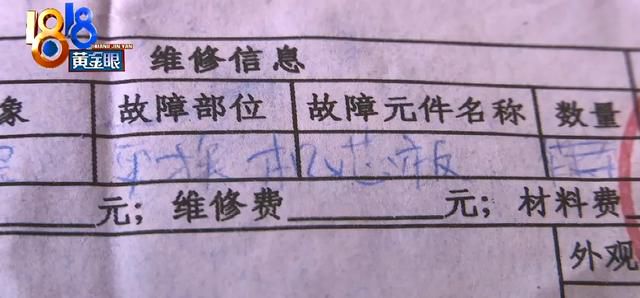 1818
HUANG JIN YAN
黄金眼
维修信息
象 故障部位 故障元件名称 数量
更换 机芯板
元；维修费 元；材料费
外观